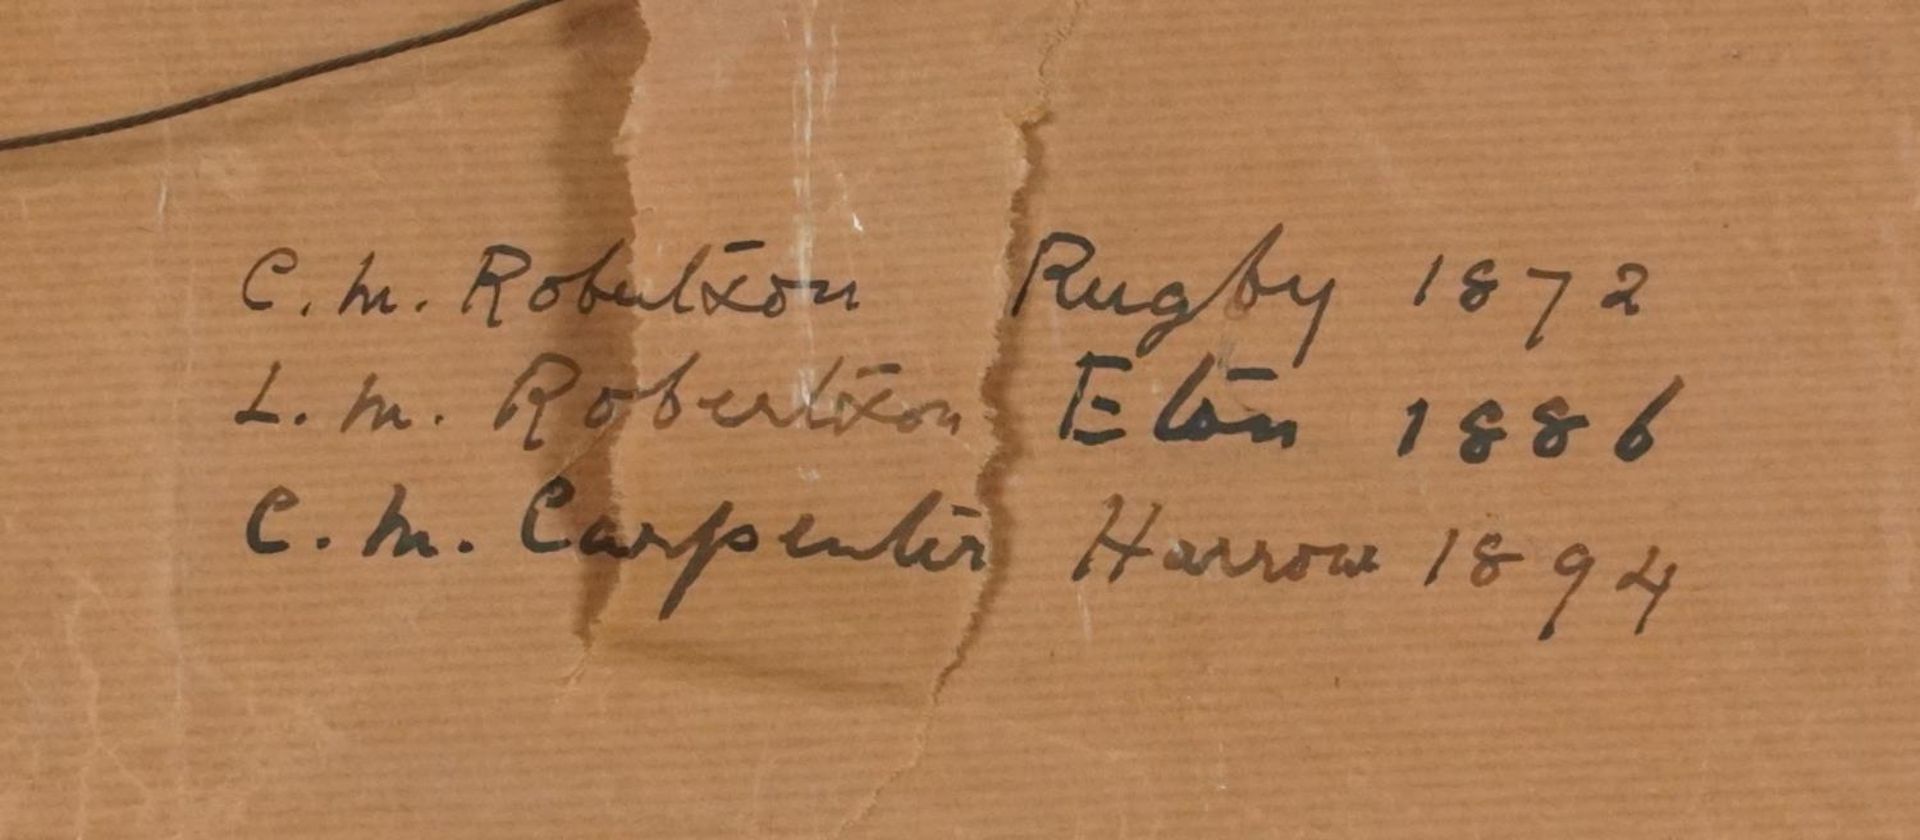 C. M. Robertson Rugby 1872
L. M. Robertson Eton 1886
C. M. Carpenter Harrow 1894